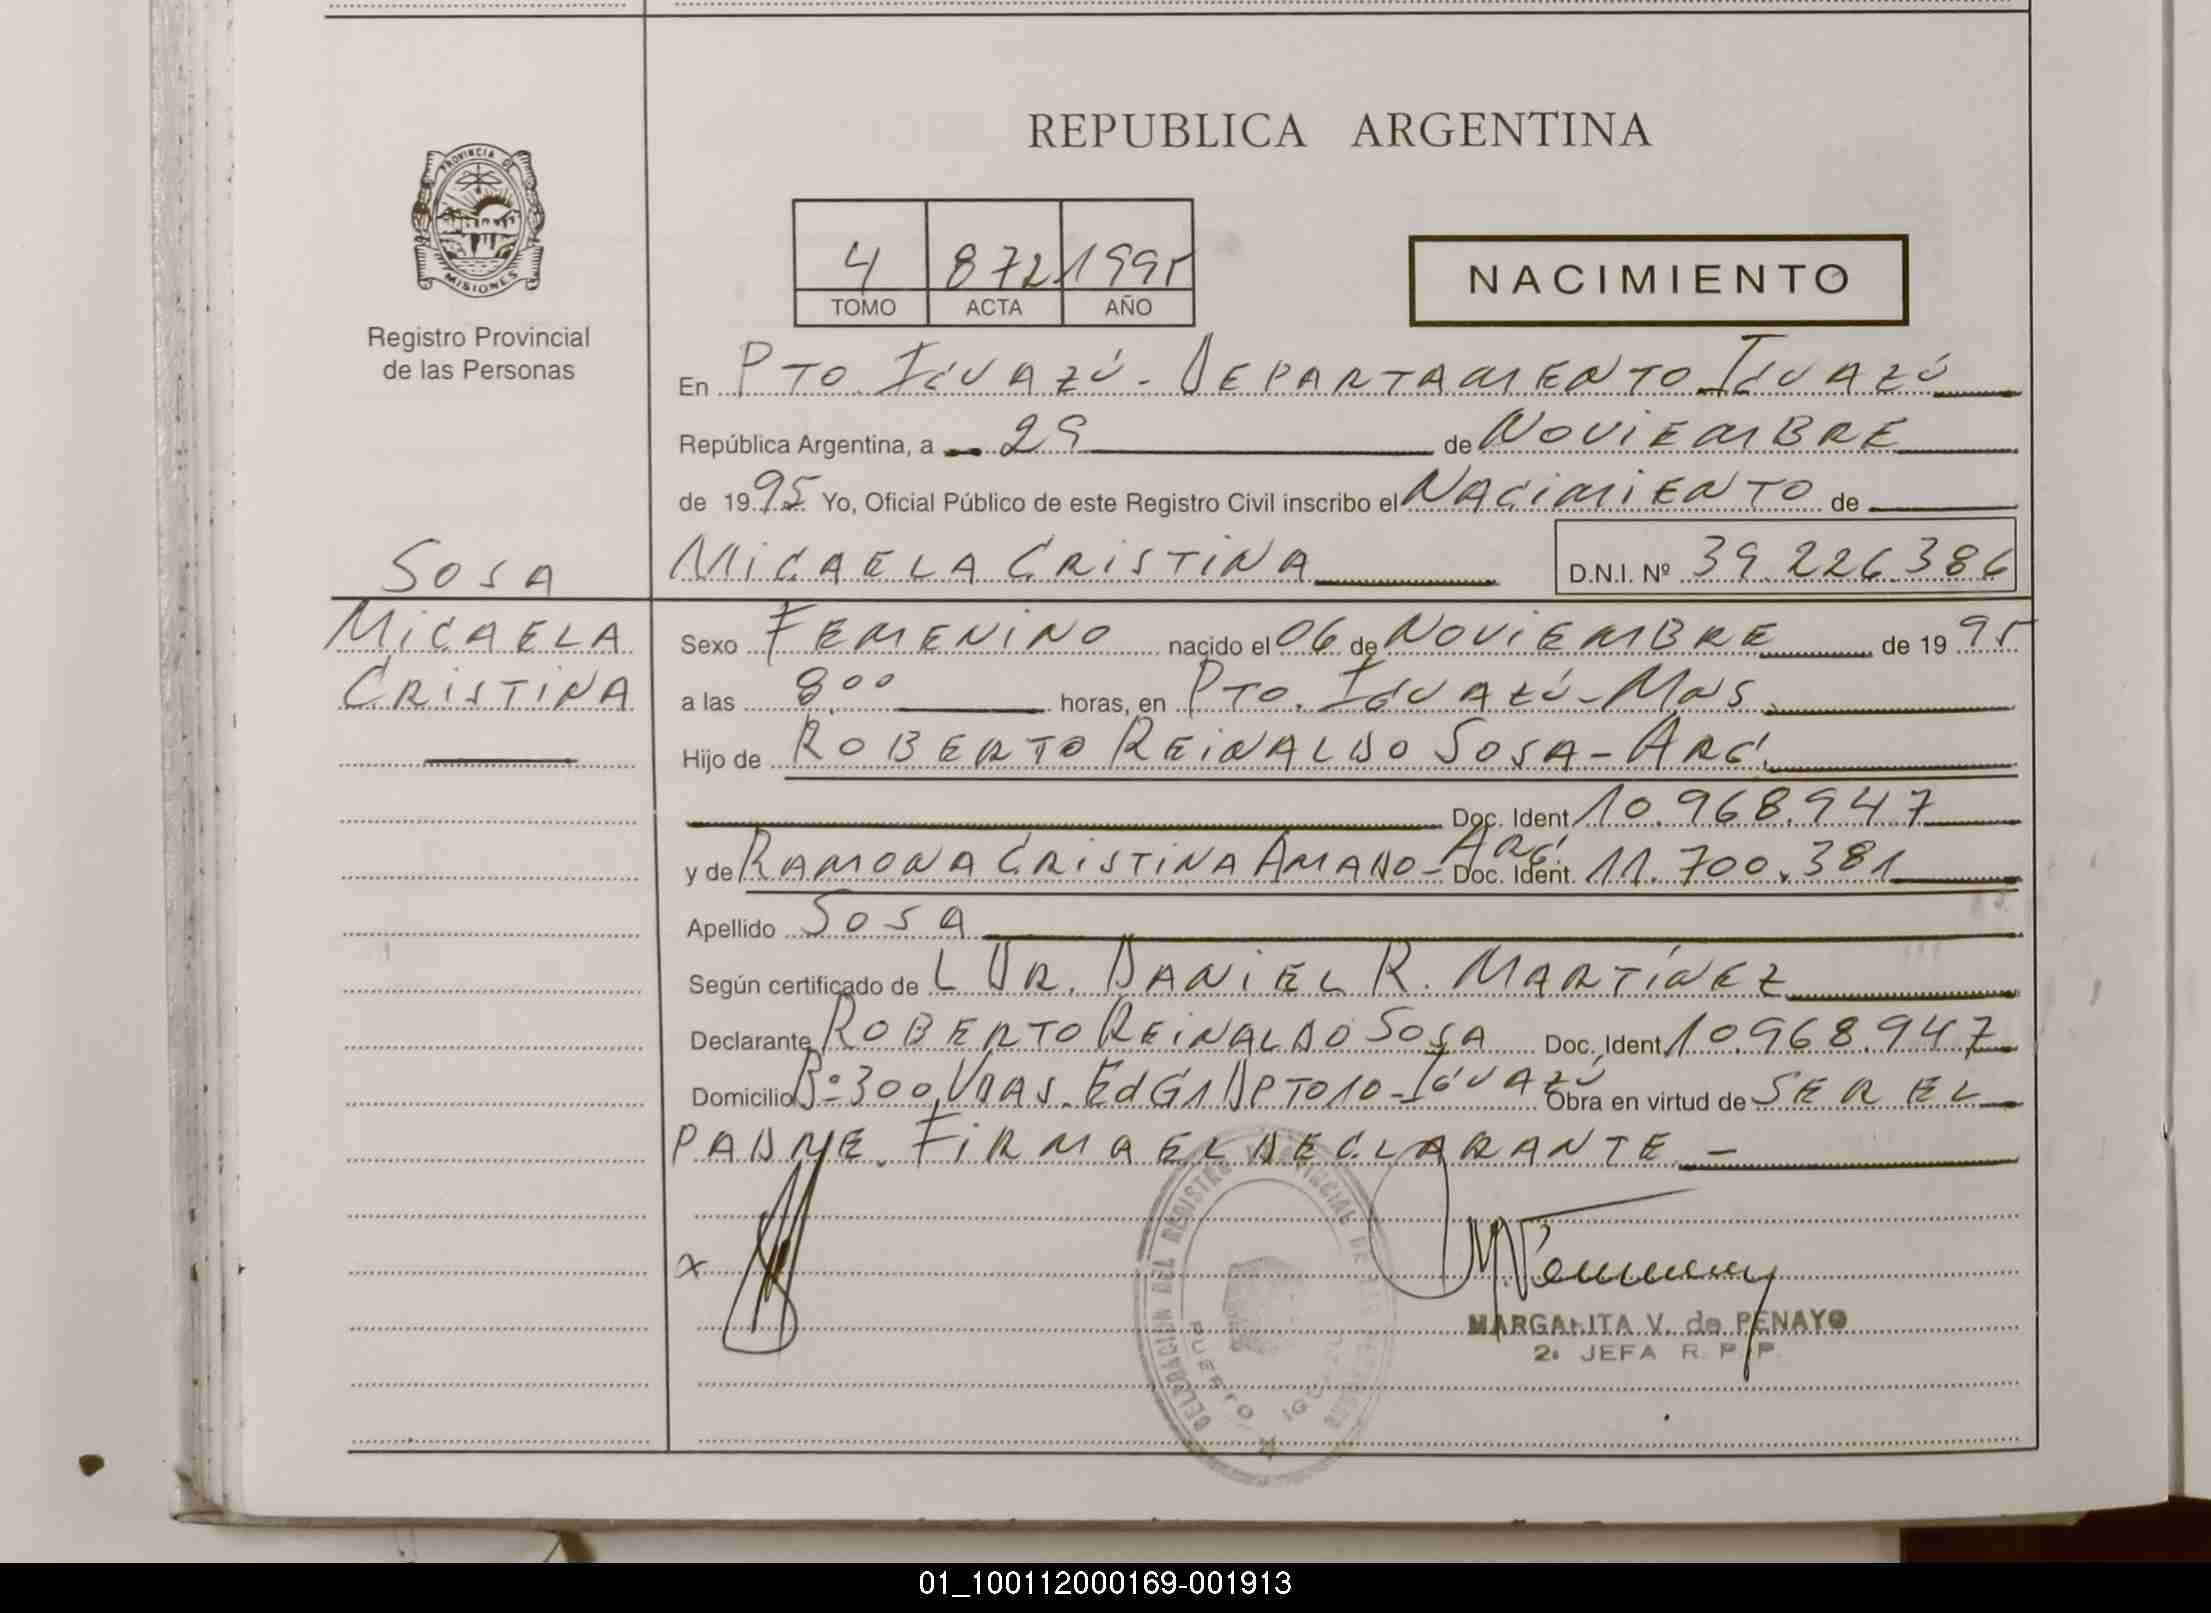 REPUBLICA ARGENTINA
PROVINCIA DE
MISIONES
Registro Provincial
de las Personas
4 872 1995
TOMO ACTA AÑO
NACIMIENTO
En PTO. IGUAZÚ - DEPARTAMENTO IGUAZÚ
República Argentina, a 29 de NOVIEMBRE
de 1995 Yo, Oficial Público de este Registro Civil inscribo el NACIMIENTO de
MICAELA CRISTINA D.N.I. Nº 39.226.386
SOSA
MICAELA
CRISTINA
Sexo FEMENINO nacido el 06 de NOVIEMBRE de 1995
a las 8.00 horas, en PTO. IGUAZÚ - MNS.
Hijo de ROBERTO REINALDO SOSA - ARG.
Doc. Ident 10.968.947
y de RAMONA CRISTINA AMADO - ARG. Doc. Ident. 11.700.381
Apellido SOSA
Según certificado de L DR. DANIEL R. MARTÍNEZ
Declarante ROBERTO REINALDO SOSA Doc. Ident 10.968.947
Domicilio Bº 300 VDAS. EdG1 DPTO 10 - IGUAZÚ Obra en virtud de SER EL
PADRE. FIRMA EL DECLARANTE. -
x
DELEGACION DEL REGISTRO PROVINCIAL DE LAS PERSONAS
PUERTO IGUAZU
MARGARITA V. de PENAYO
2ª JEFA R. P. P.
01_100112000169-001913